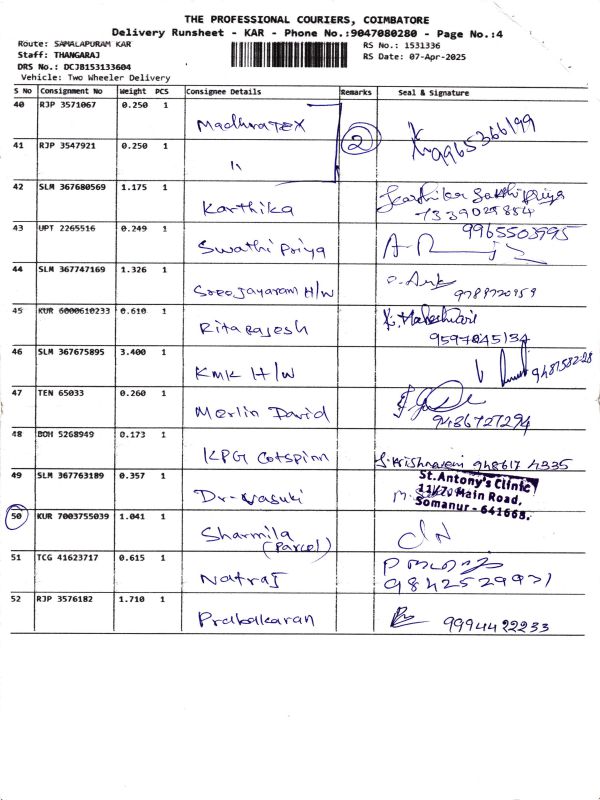 THE PROFESSIONAL COURIERS, COIMBATORE
Delivery Runsheet - KAR - Phone No.:9047080280 - Page No.:4
Route: SAMALAPURAM KAR
Staff: THANGARAJ
DRS No.: DCJB153133604
Vehicle: Two Wheeler Delivery
RS No.: 1531336
RS Date: 07-Apr-2025
S No Consignment No Weight PCS Consignee Details Remarks Seal & Signature
40 RJP 3571067 0.250 1 Madhura TEX 2 9965366199
41 RJP 3547921 0.250 1 "
42 SLM 367680569 1.175 1 Karthika
7339029854
43 UPT 2265516 0.249 1 Swathi Priya 9965503995
44 SLM 367747169 1.326 1 Sree Jayaram H/W
9789720959
45 KUR 6000610233 0.610 1 Rita Rajesh K. Maheshwari
9597045134
46 SLM 367675895 3.400 1 KMK H/W
47 TEN 65033 0.260 1 Merlin David
9486727294
48 BOH 5268949 0.173 1 KPG Cotspinn 948617 4335
49 SLM 367763189 0.357 1 Dr. Vasuki
St.Antony's Clinic
11/70, Main Road,
Somanur - 641668.
50 KUR 7003755039 1.041 1 Sharmila
(Parcel)
51 TCG 41623717 0.615 1 Natraj
9842529931
52 RJP 3576182 1.710 1 Prabakaran 9994422233